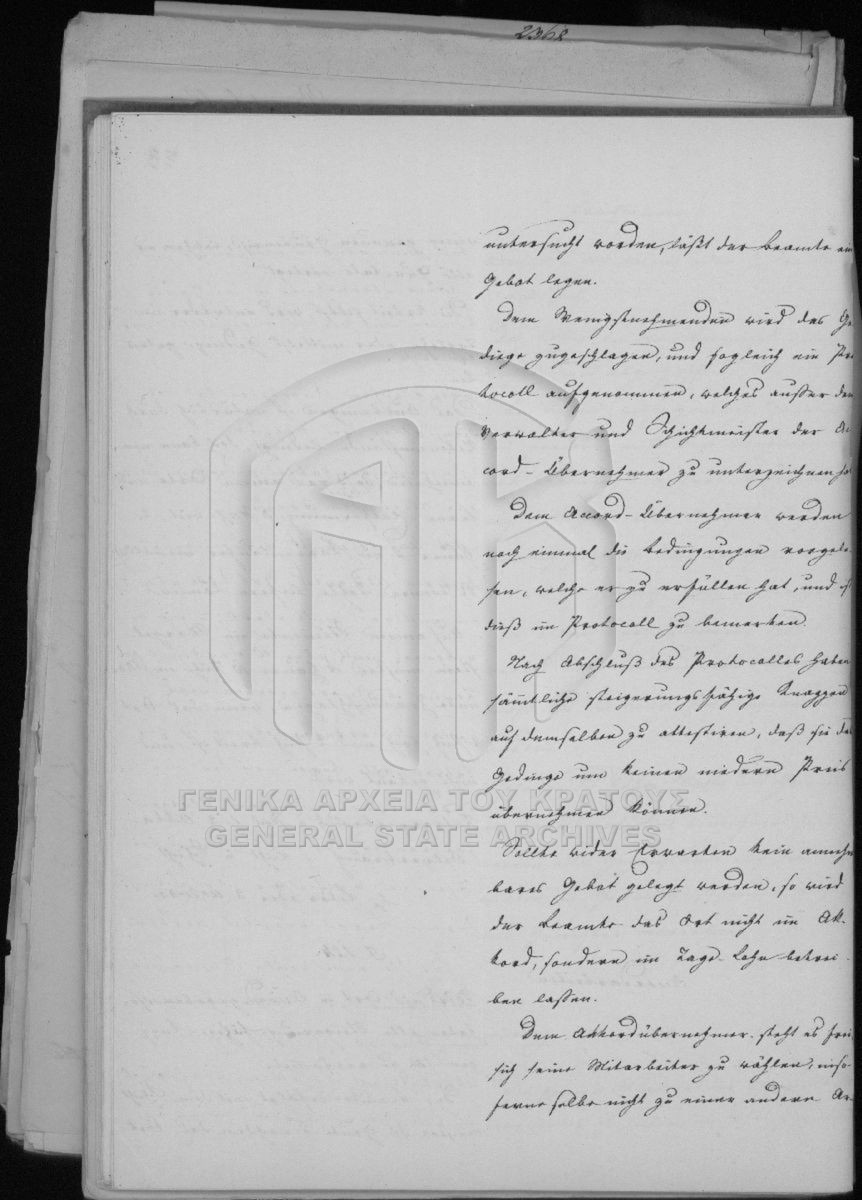 2368
untersucht worden, läßt der Beamte ein
Gebot legen.
Dem Wenigstnehmenden wird das Ge
dinge zugeschlagen, und sogleich ein Pro
tocoll aufgenommen, welches ausser dem
Verwalter und Schichtmeister der Ac
cord-Übernehmer zu unterzeichnen hat
Dem Accord-Übernehmer werden
noch einmal die Bedingungen vorgele
sen, welche er zu erfüllen hat, und ist
dieß im Protocoll zu bemerken.
Nach Abschluß des Protocolles haben
sämtliche steigerungsfähige Knappen
auf demselben zu attestiren, daß sie das
Gedinge um keinen niedern Preis
übernehmen können.
ΓΕΝΙΚΑ ΑΡΧΕΙΑ ΤΟΥ ΚΡΑΤΟΥΣ
GENERAL STATE ARCHIVES
Sollte wider Erwarten kein annehm
bares Gebot gelegt werden, so wird
der Beamte das Ort nicht im Ak-
kord, sondern im Tage-Lohn betrei-
ben lassen.
Dem Akkordübernehmer steht es frei
sich seine Mitarbeiter zu wählen, inso
ferne selbe nicht zu einer andern Ar